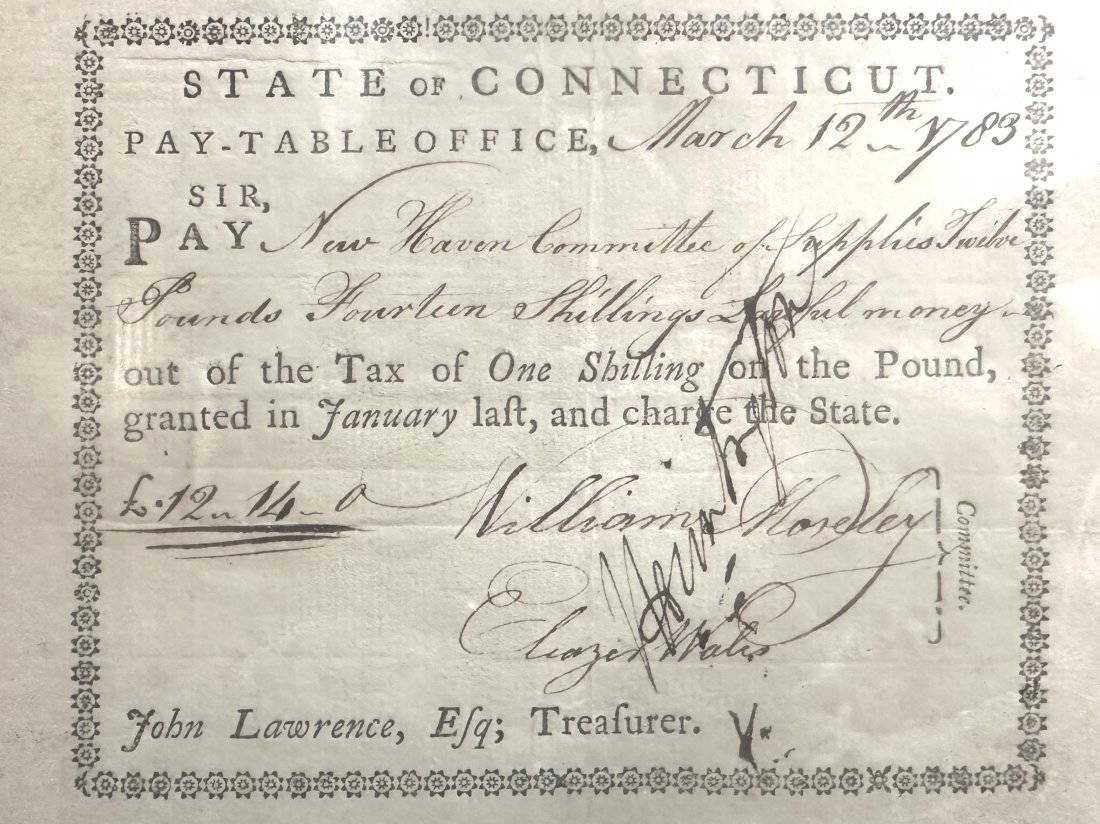 STATE OF CONNECTICUT.
PAY-TABLE OFFICE, March 12th 1783
SIR,
PAY New Haven Committee of Supplies Twelve
Pounds Fourteen Shillings Lawful money
out of the Tax of One Shilling on the Pound,
granted in January laſt, and charge the State.
£.12 - 14 - 0
William Moseley
Committee.
Eleazer Wales
John Lawrence, Eſq; Treaſurer.